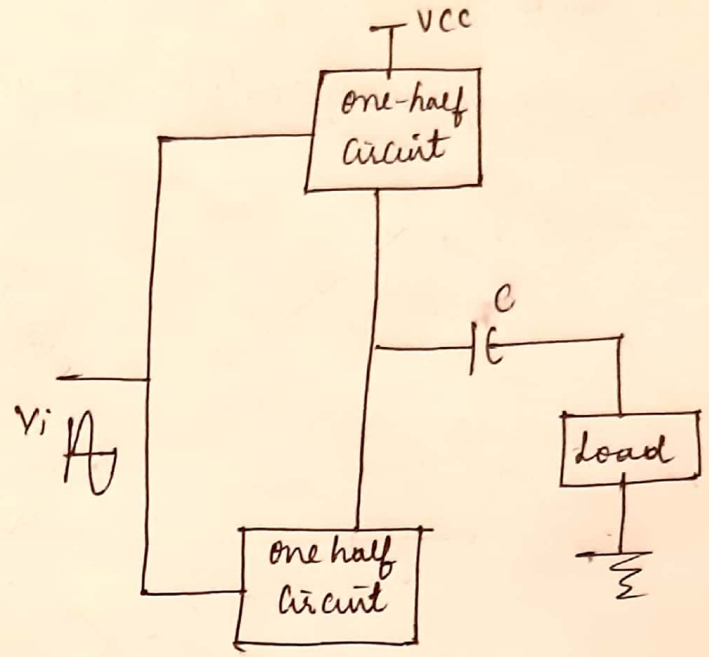 VCC
one-half
circuit
C
Vi
Load
one half
circuit